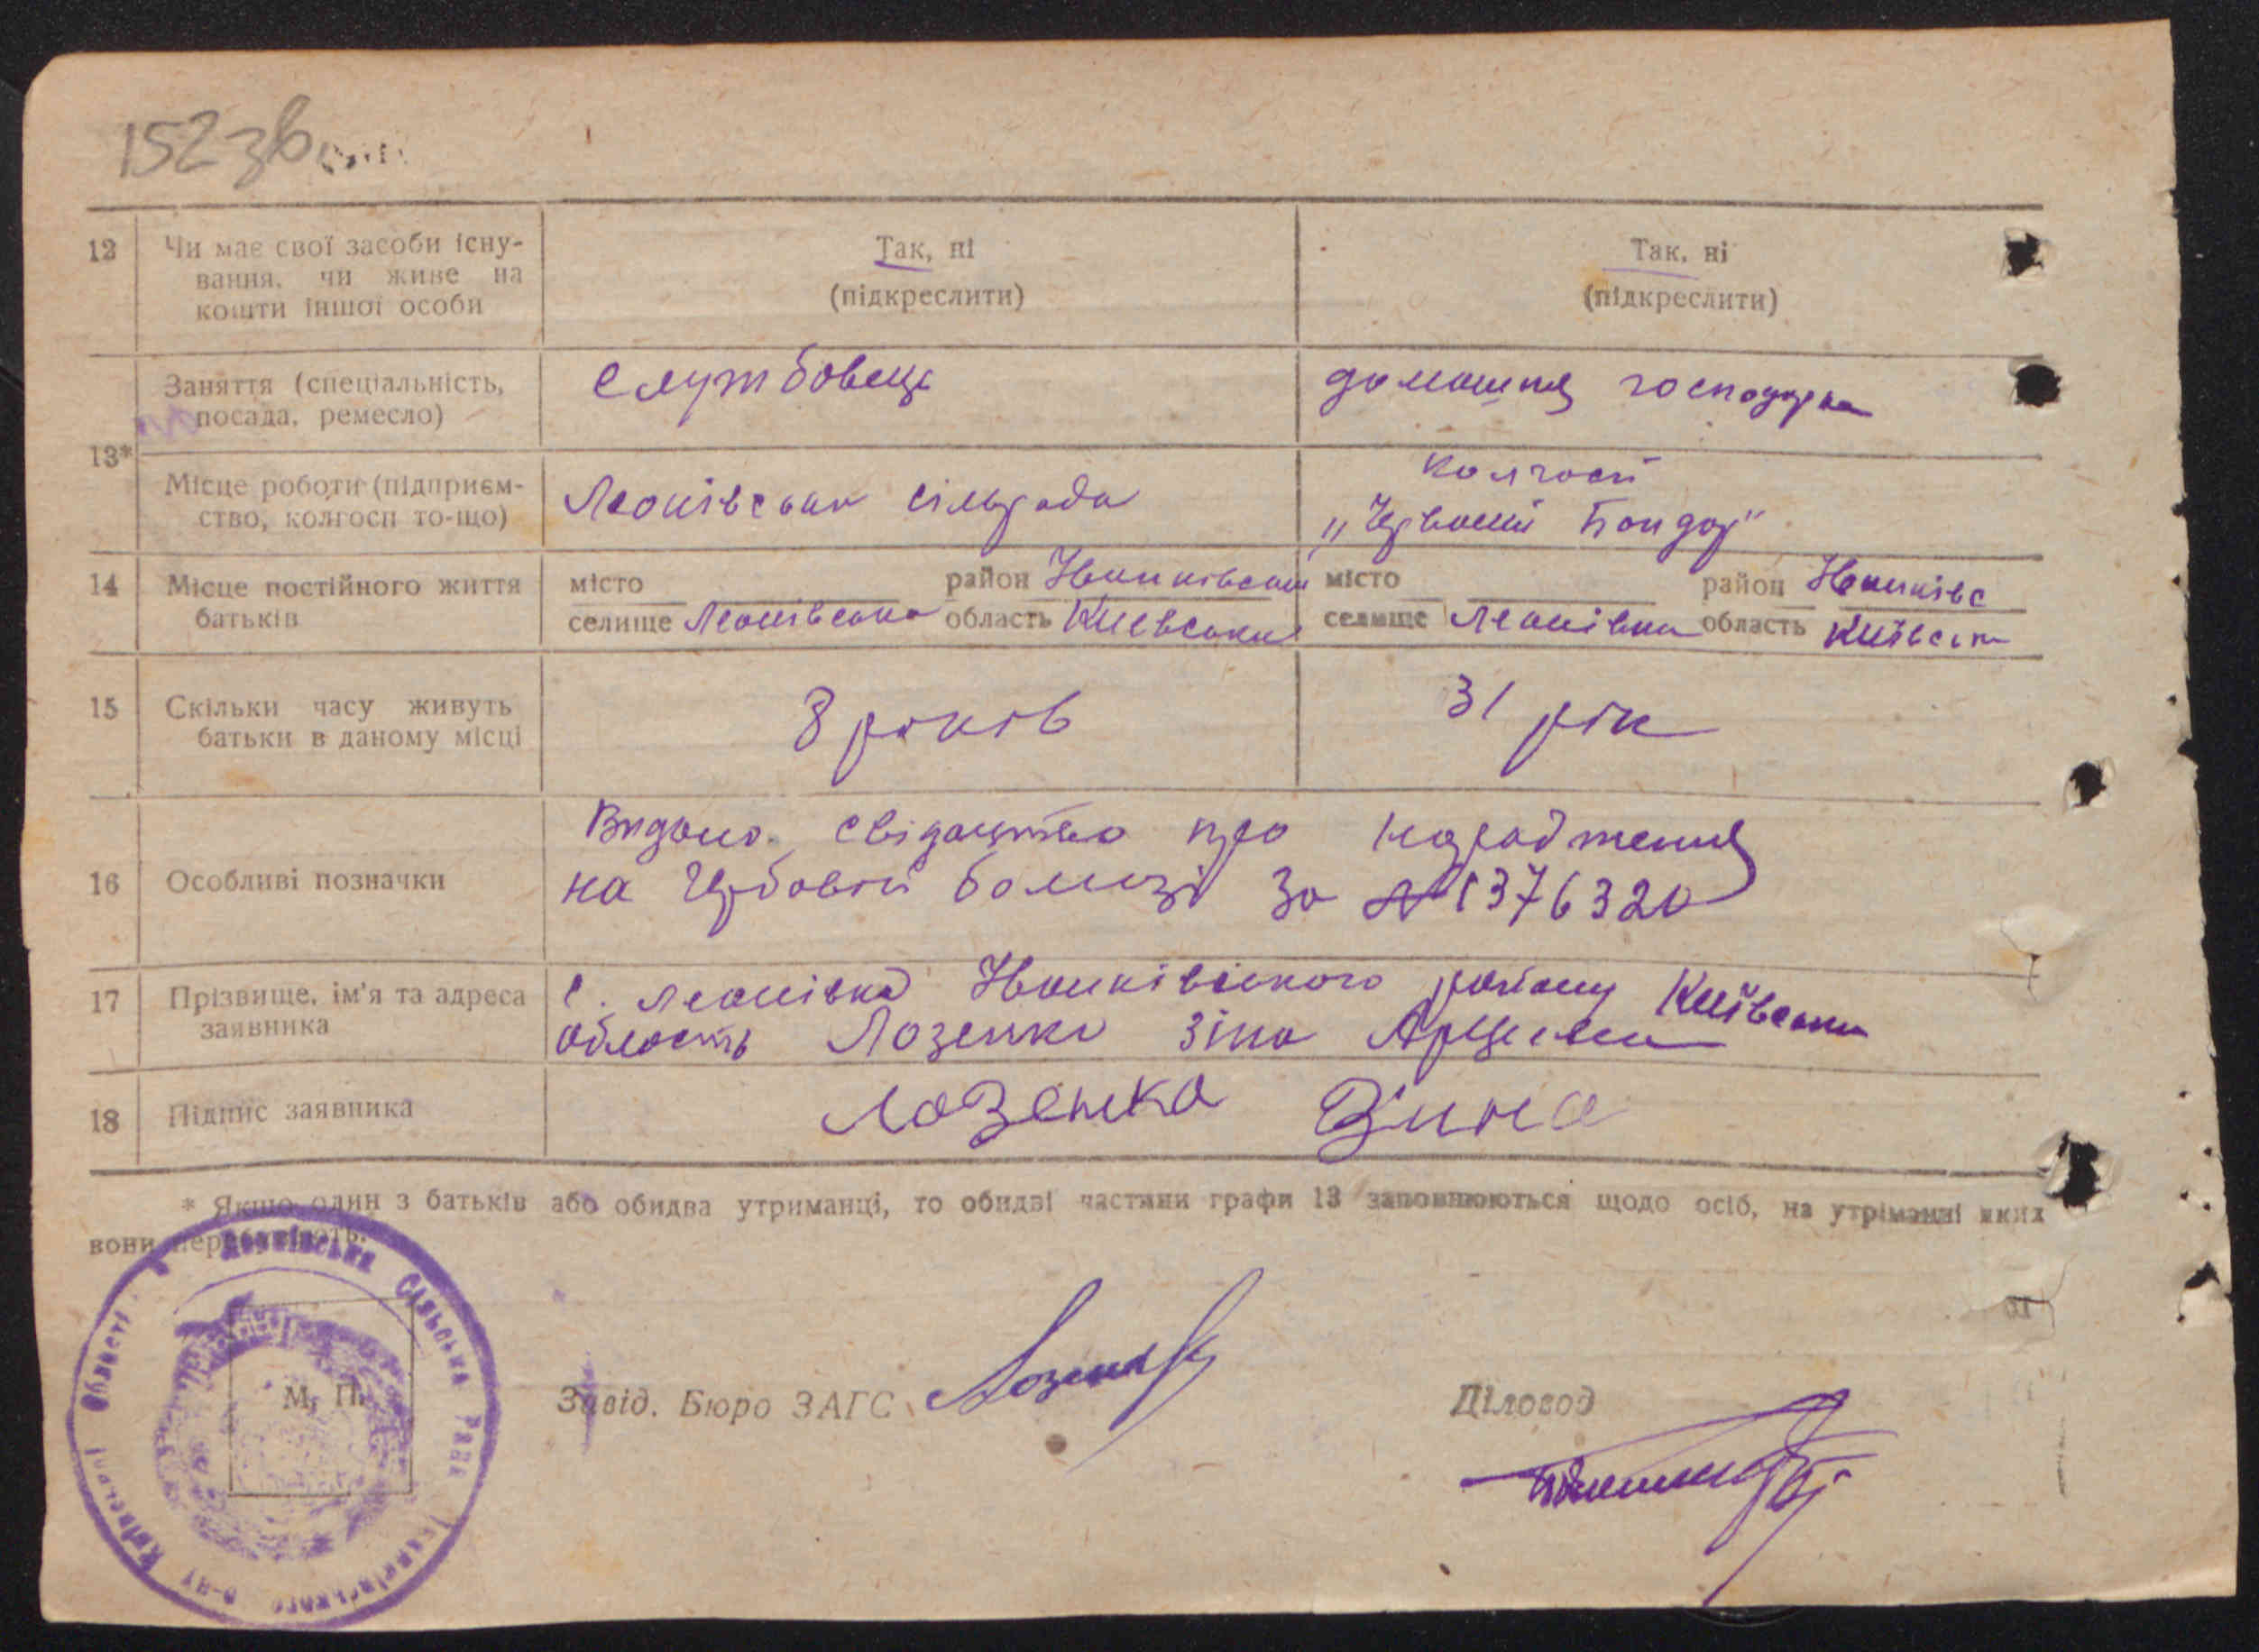 152 зв.
12 Чи має свої засоби існу-
вання, чи живе на
кошти іншої особи
Так, ні
(підкреслити)
Так, ні
(підкреслити)
13*
Заняття (спеціальність,
посада, ремесло)
Службовець
домашня господарка
Місце роботи (підприєм-
ство, колгосп то-що)
Леонівська сільрада
Колгосп
„Червоний Бондар"
14 Місце постійного життя
батьків
місто район Іванківськ
селище Леонівська область Київська
місто район Іванківс
селище Леонівка область Київськ
15 Скільки часу живуть
батьки в даному місці
8 років
31 рік
16 Особливі позначки
Видано свідацтво про народження
на гербовій бомазі за № 1376320
17 Прізвище, ім'я та адреса
заявника
с. Леонівка Іванківського району Київськ
область Лозенко Зіна
18 Підпис заявника
Лозенко Зина
* Якщо один з батьків або обидва утриманці, то обидві частини графи 13 заповнюються щодо осіб, на утріманні яких
вони перебувають.
Леонівська Сільська Рада Іванківського р-ну Київської Області
М. П.
Завід. Бюро ЗАГС
Діловод